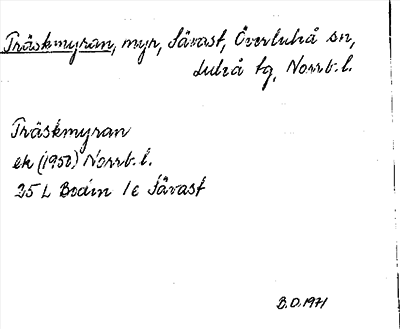 Träskmyran, myr, Sävast, Överluleå sn,
Luleå tg, Norrb. l.
Träskmyran
ek (1950) Norrb. l.
25 L Boden 1e Sävast
B.O. 1971